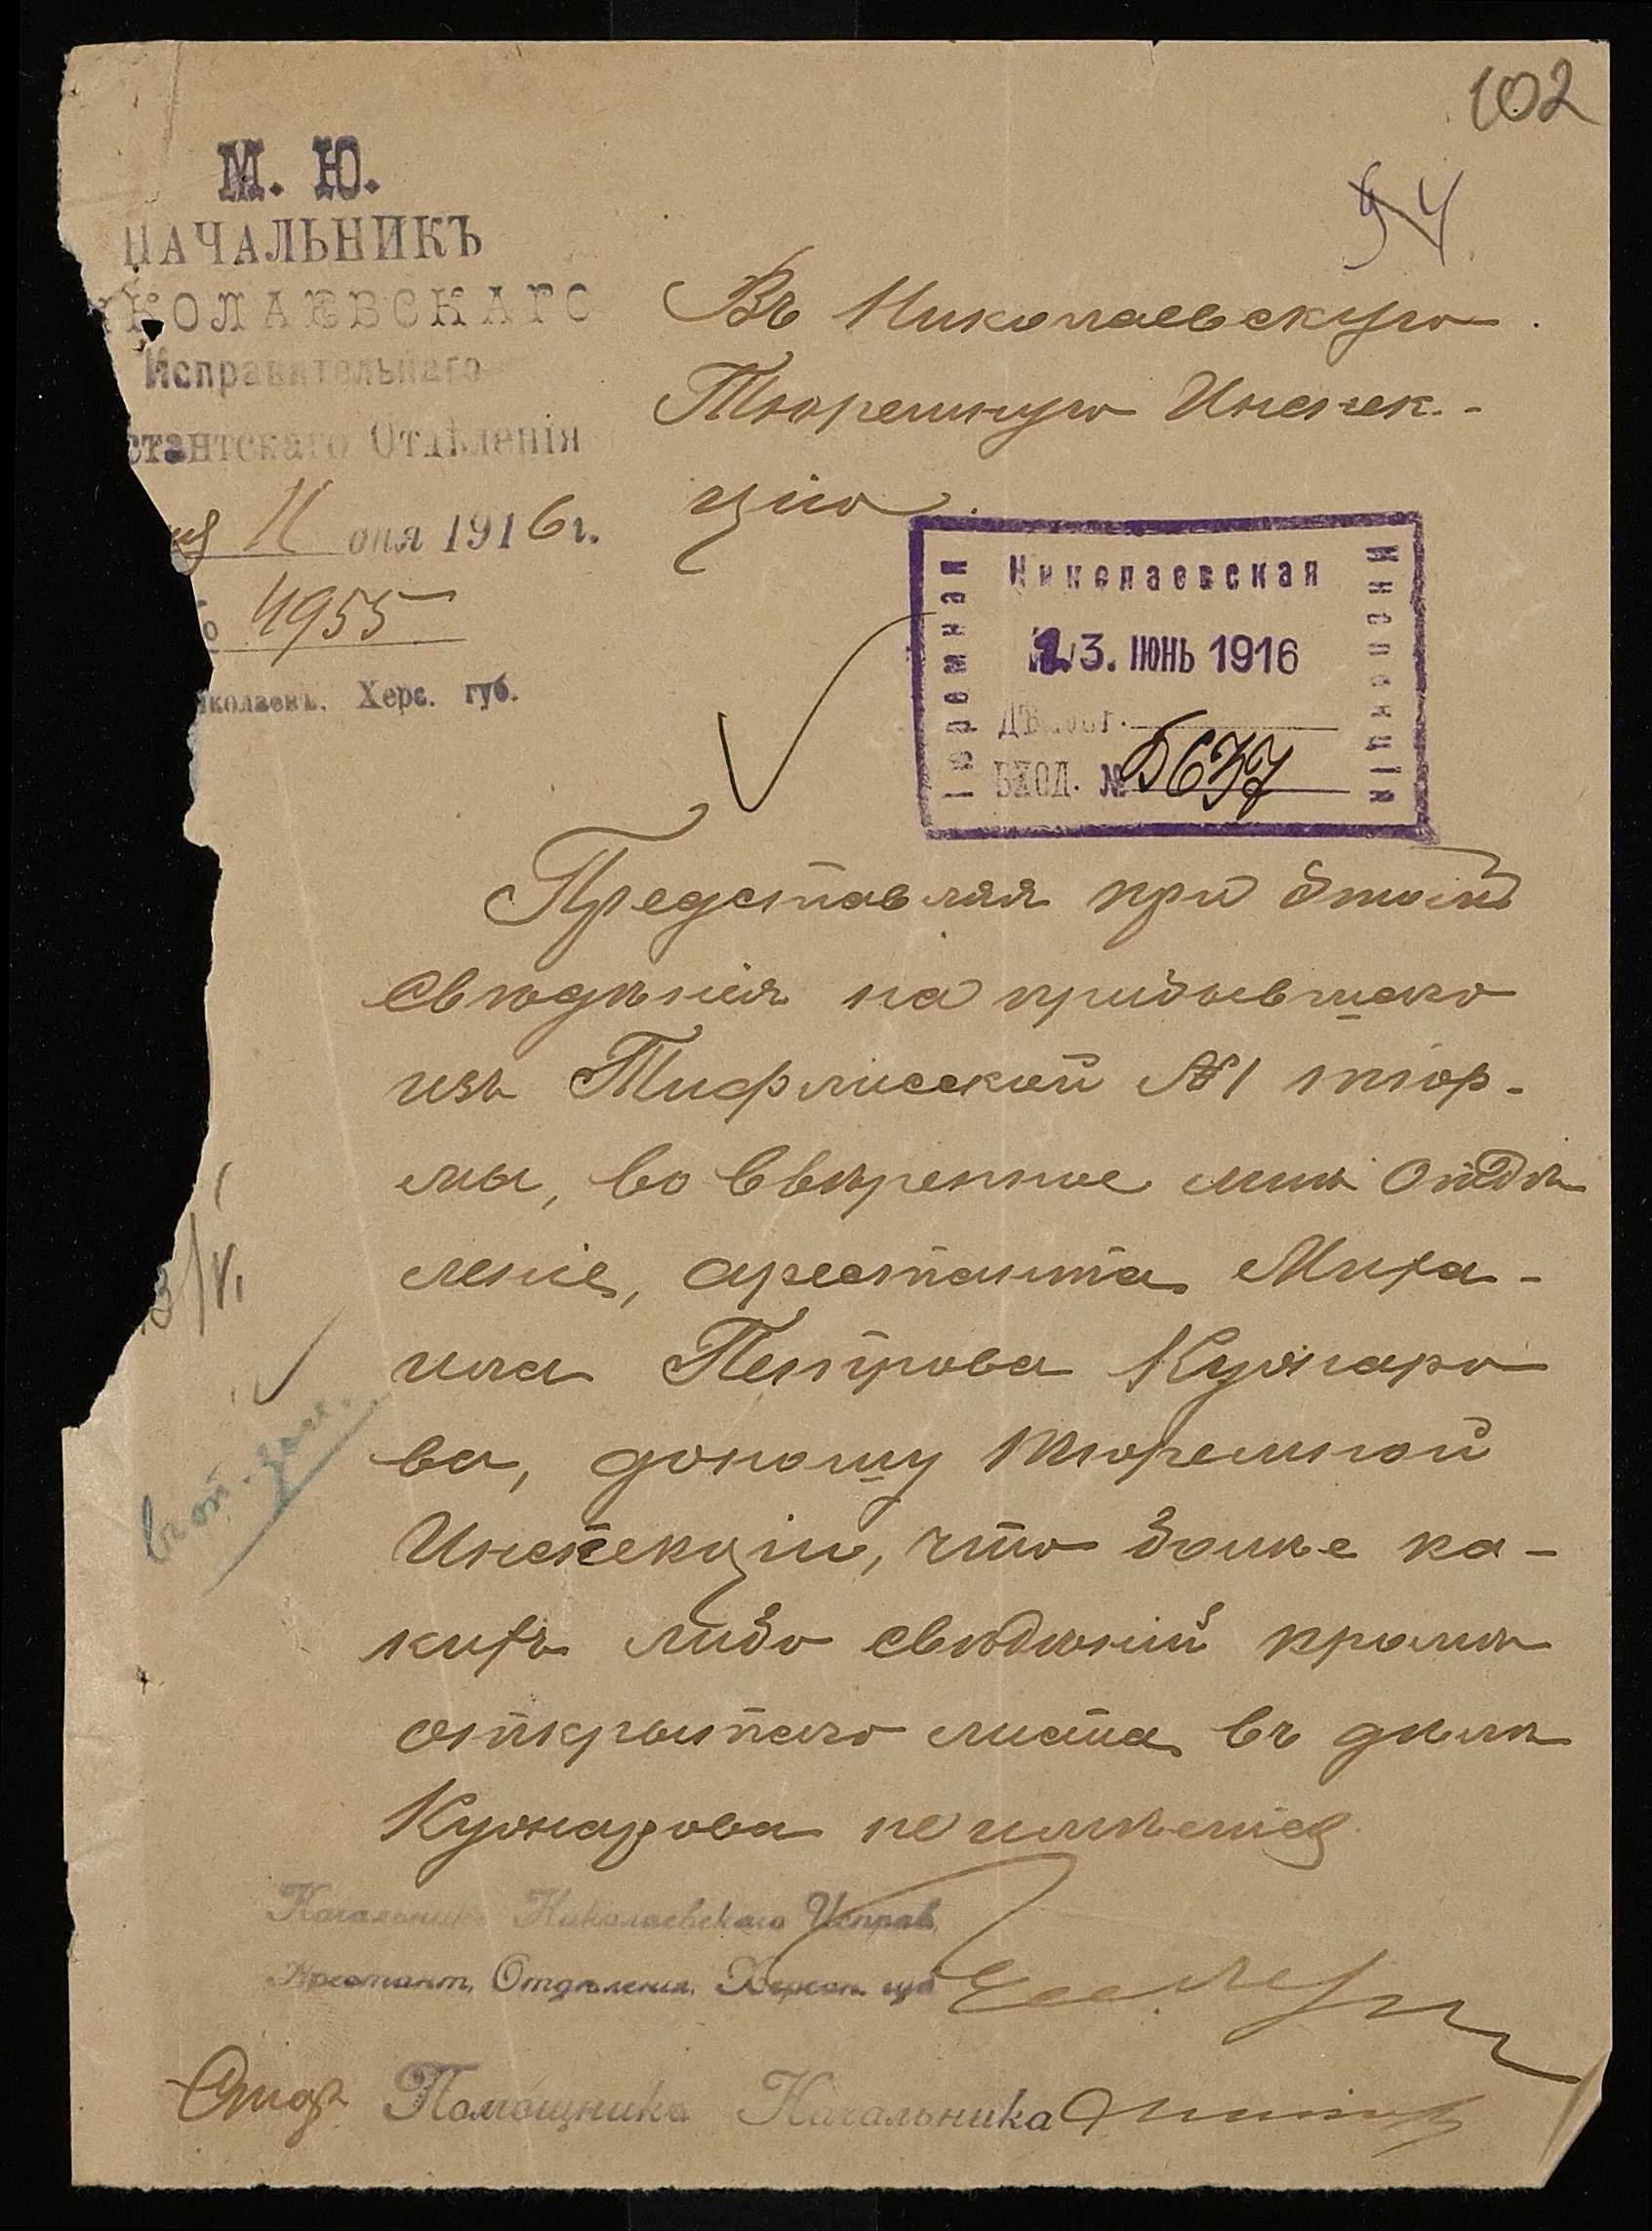 102
94
М. Ю.
НАЧАЛЬНИКЪ
ИКОЛАЕВСКАГО
Исправительнаго
стантскаго Отдѣленія
11 оня 1916 г.
4955
иколаевъ, Херс. губ.
Въ Николаевскую
Тюремную Инспек-
цію.
Николаевская
Тюремная
Инспекція
13. ІЮНЬ 1916
ВХОД. № 5637
Представляя при этомъ
свѣдѣнія на прибывшаго
изъ Тифлисской №1 тюр-
мы, во ввѣренное мнѣ Отдѣ
леніе, арестанта Миха-
ила Петрова Кужаро
ва, доношу Тюремной
Инспекціи, что болѣе ка-
кихъ либо свѣдѣній кромѣ
открытаго листа въ дѣлѣ
Кужарова не имѣется
Начальникъ Николаевскаго Исправ.
Арестант. Отдѣленія, Херсон. губ.
Помощника Начальника